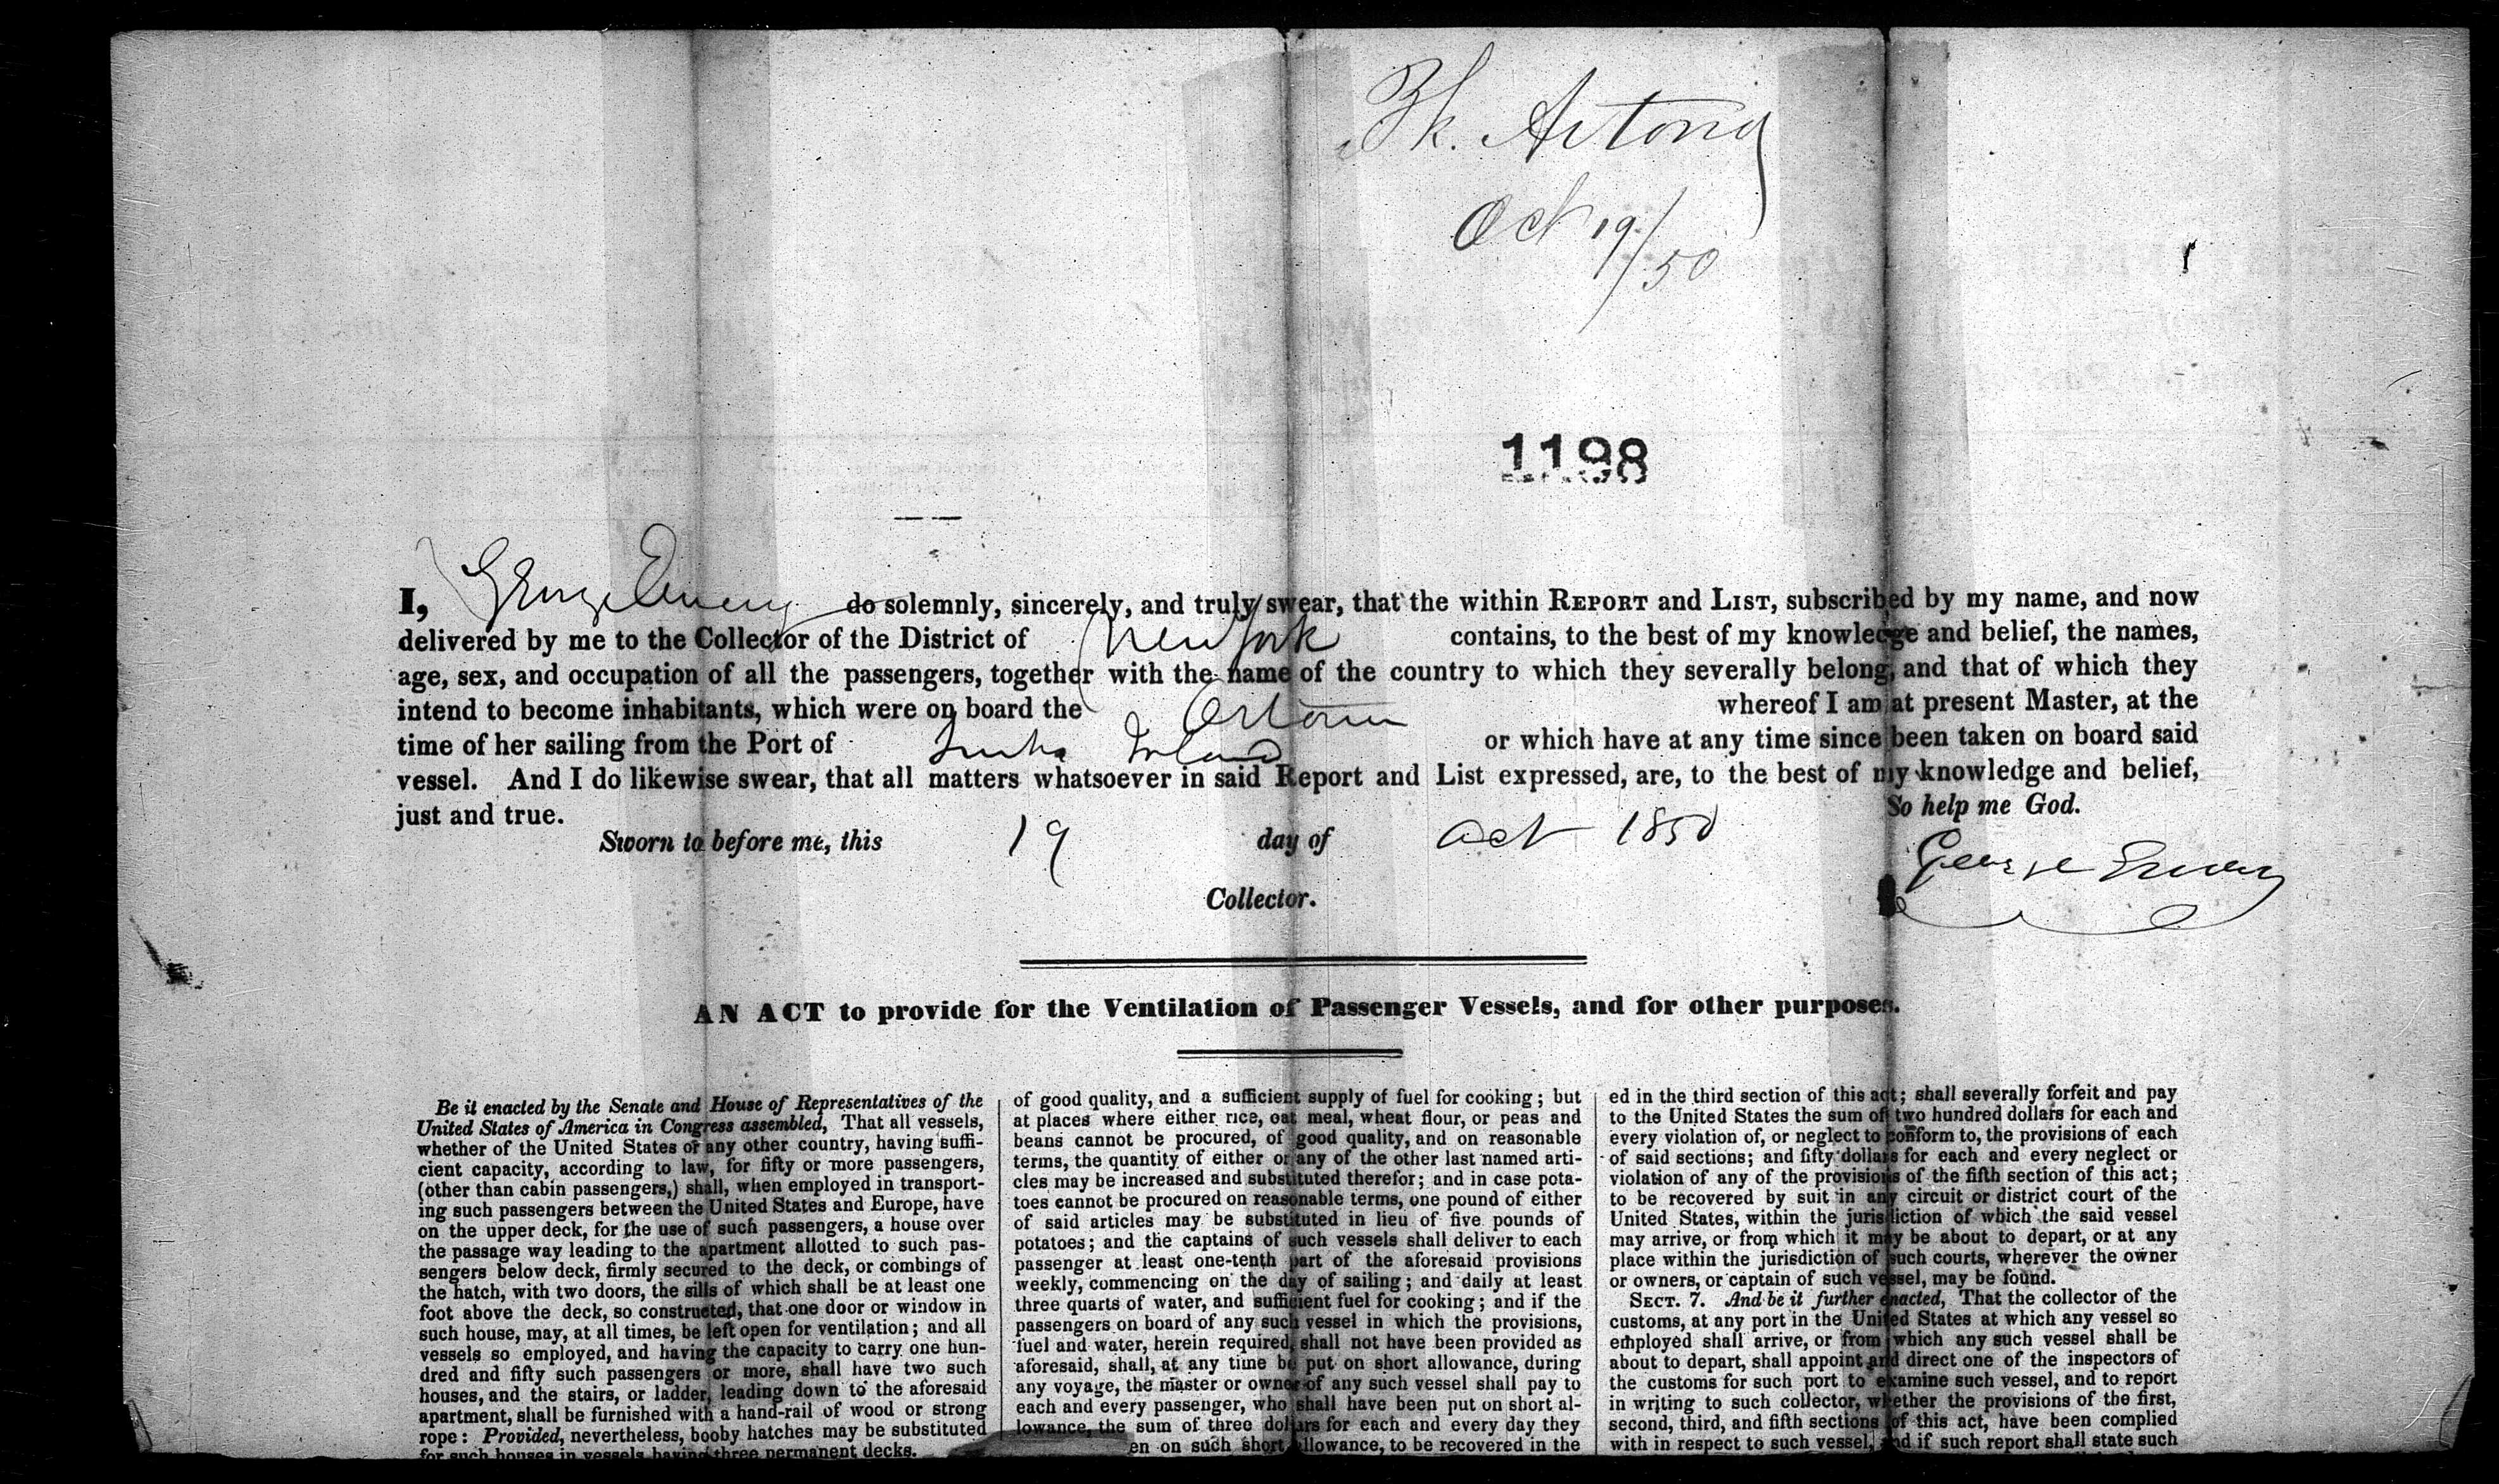 Bk. Artona
Oct 19/50
1198
I, George Emery do solemnly, sincerely, and truly swear, that the within REPORT and LIST, subscribed by my name, and now
delivered by me to the Collector of the District of New York contains, to the best of my knowledge and belief, the names,
age, sex, and occupation of all the passengers, together with the name of the country to which they severally belong, and that of which they
intend to become inhabitants, which were on board the whereof I am at present Master, at the
time of her sailing from the Port of or which have at any time since been taken on board said
vessel. And I do likewise swear, that all matters whatsoever in said Report and List expressed, are, to the best of my knowledge and belief,
just and true. So help me God.
Sworn to before me, this 19 day of Oct 1850
George Emery
Collector.
AN ACT to provide for the Ventilation of Passenger Vessels, and for other purposes.
Be it enacted by the Senate and House of Representatives of the
United States of America in Congress assembled, That all vessels,
whether of the United States or any other country, having suffi-
cient capacity, according to law, for fifty or more passengers,
(other than cabin passengers,) shall, when employed in transport-
ing such passengers between the United States and Europe, have
on the upper deck, for the use of such passengers, a house over
the passage way leading to the apartment allotted to such pas-
sengers below deck, firmly secured to the deck, or combings of
the hatch, with two doors, the sills of which shall be at least one
foot above the deck, so constructed, that one door or window in
such house, may, at all times, be left open for ventilation; and all
vessels so employed, and having the capacity to carry one hun-
dred and fifty such passengers or more, shall have two such
houses, and the stairs, or ladder, leading down to the aforesaid
apartment, shall be furnished with a hand-rail of wood or strong
rope: Provided, nevertheless, booby hatches may be substituted
for such houses in vessels having three permanent decks.
of good quality, and a sufficient supply of fuel for cooking; but
at places where either rice, oat meal, wheat flour, or peas and
beans cannot be procured, of good quality, and on reasonable
terms, the quantity of either or any of the other last named arti-
cles may be increased and substituted therefor; and in case pota-
toes cannot be procured on reasonable terms, one pound of either
of said articles may be substituted in lieu of five pounds of
potatoes; and the captains of such vessels shall deliver to each
passenger at least one-tenth part of the aforesaid provisions
weekly, commencing on the day of sailing; and daily at least
three quarts of water, and sufficient fuel for cooking; and if the
passengers on board of any such vessel in which the provisions,
fuel and water, herein required, shall not have been provided as
aforesaid, shall, at any time be put on short allowance, during
any voyage, the master or owner of any such vessel shall pay to
each and every passenger, who shall have been put on short al-
lowance, the sum of three dollars for each and every day they
en on such short allowance, to be recovered in the
ed in the third section of this act; shall severally forfeit and pay
to the United States the sum of two hundred dollars for each and
every violation of, or neglect to conform to, the provisions of each
of said sections; and fifty dollars for each and every neglect or
violation of any of the provisions of the fifth section of this act;
to be recovered by suit in any circuit or district court of the
United States, within the jurisdiction of which the said vessel
may arrive, or from which it may be about to depart, or at any
place within the jurisdiction of such courts, wherever the owner
or owners, or captain of such vessel, may be found.
SECT. 7. And be it further enacted, That the collector of the
customs, at any port in the United States at which any vessel so
employed shall arrive, or from which any such vessel shall be
about to depart, shall appoint and direct one of the inspectors of
the customs for such port to examine such vessel, and to report
in writing to such collector, whether the provisions of the first,
second, third, and fifth sections of this act, have been complied
with in respect to such vessel, and if such report shall state such